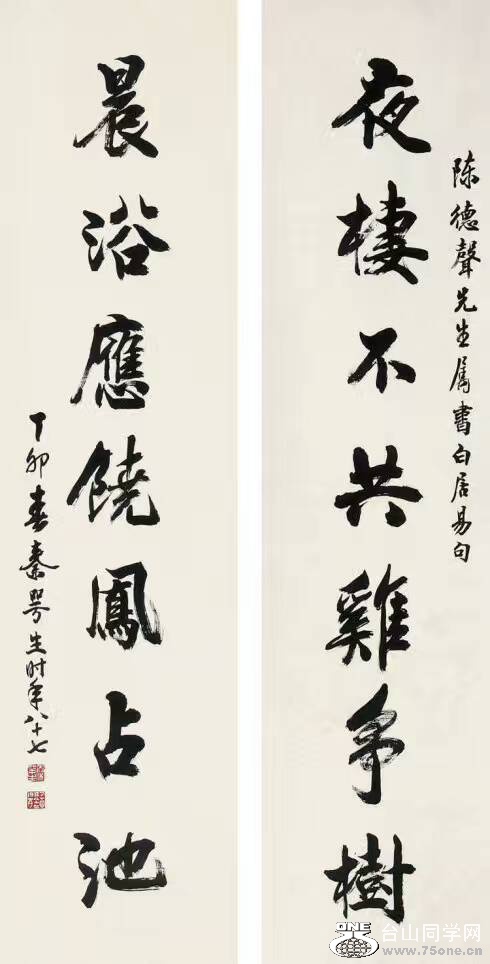 陈德聲先生属書白居易句
夜棲不共雞争樹
晨浴應饒鳳占池
丁卯春秦咢生时年八十七
ONE 台山同学网
www.75one.com